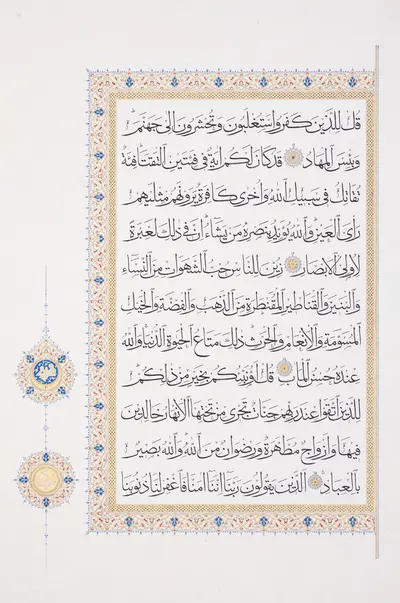 قل للذين كفروا ستغلبون وتحشرون إلى جهنم
وبئس المهاد قد كان لكم آية في فئتين التقتا فئة
تقاتل في سبيل الله وأخرى كافرة يرونهم مثليهم
رأي العين والله يؤيد بنصره من يشاء إن في ذلك لعبرة
لأولي الأبصار زين للناس حب الشهوات من النساء
والبنين والقناطير المقنطرة من الذهب والفضة والخيل
المسومة والأنعام والحرث ذلك متاع الحيوة الدنيا والله
عنده حسن المآب قل أؤنبئكم بخير من ذلكم
للذين اتقوا عند ربهم جنات تجري من تحتها الأنهار خالدين
فيها وأزواج مطهرة ورضوان من الله والله بصير
بالعباد الذين يقولون ربنا إننا آمنا فاغفر لنا ذنوبنا